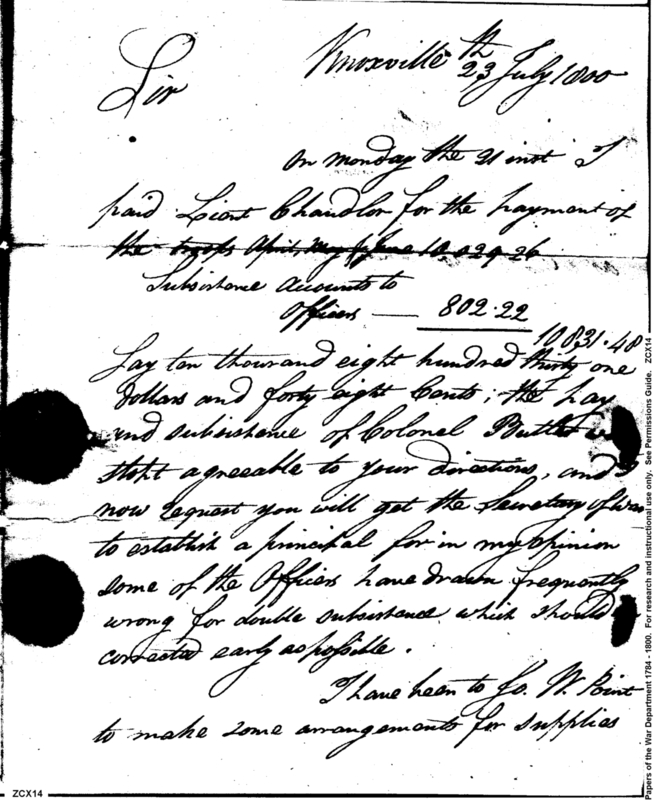 Knoxville 23th July 1800
Sir
on monday the 21 inst I
paid Lieut Chandler for the payment of
the troops April May & June 10.029.26
Subsistance accounts to
Officers — 802.22
10831.48
Say ten thousand eight hundred thirty one
Dollars and forty eight Cents; the pay
and subsistence of Colonel Butler is
stopt agreeable to your directions, and I
now request you will get the Secretary of War
to establish a principal for in my opinion
some of the Officers have drawn frequently
wrong for double subsistence which should
corrected early as possible.
I have been to So. W. Point
to make some arrangements for supplies
ZCX14
Papers of the War Department 1784 - 1800. For research and instructional use only. See Permissions Guide. ZCX14